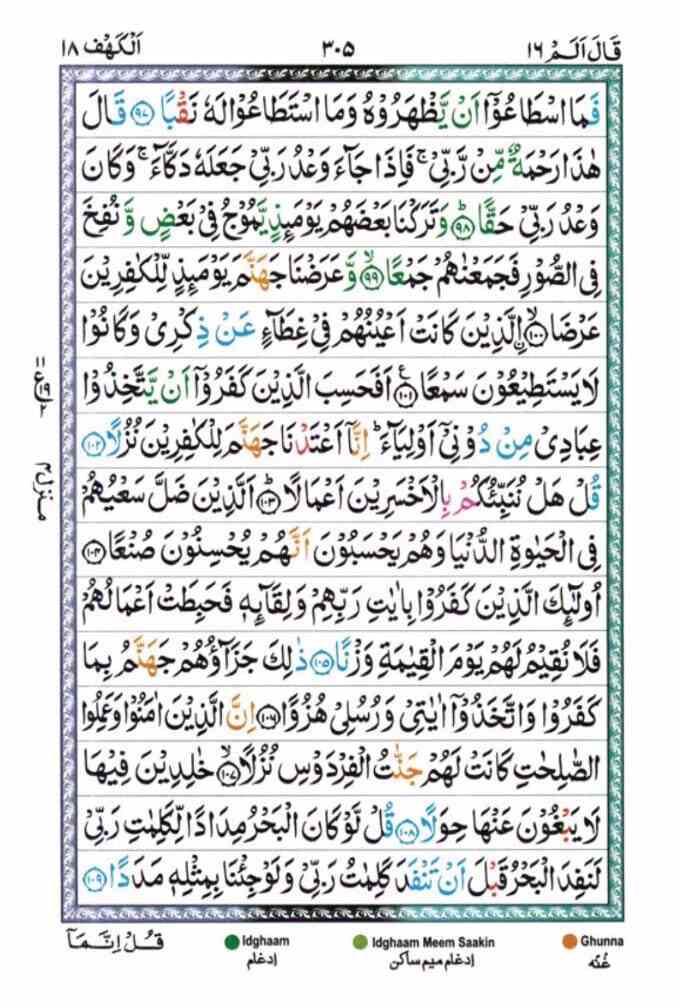 قَالَ اَلَمْ ١٦ ٣٠٥ اَلْكَهْف ١٨
فَمَا اسْطَاعُوْۤا اَنْ يَّظْهَرُوْهُ وَمَا اسْتَطَاعُوْا لَهٗ نَقْبًا ﴿٩٧﴾ قَالَ
هٰذَا رَحْمَةٌ مِّنْ رَّبِّىْ ۚ فَاِذَا جَآءَ وَعْدُ رَبِّىْ جَعَلَهٗ دَكَّآءَ ۚ وَكَانَ
وَعْدُ رَبِّىْ حَقًّا ؕ ﴿٩٨﴾ وَتَرَكْنَا بَعْضَهُمْ يَوْمَئِذٍ يَّمُوْجُ فِىْ بَعْضٍ وَّ نُفِخَ
فِى الصُّوْرِ فَجَمَعْنٰهُمْ جَمْعًا ۙ ﴿٩٩﴾ وَّ عَرَضْنَا جَهَنَّمَ يَوْمَئِذٍ لِّلْكٰفِرِيْنَ
عَرْضَا ۙ ﴿١٠٠﴾ اۨلَّذِيْنَ كَانَتْ اَعْيُنُهُمْ فِىْ غِطَآءٍ عَنْ ذِكْرِىْ وَكَانُوْا
لَا يَسْتَطِيْعُوْنَ سَمْعًا ﴿١٠١﴾ اَفَحَسِبَ الَّذِيْنَ كَفَرُوْۤا اَنْ يَّتَّخِذُوْا
عِبَادِىْ مِنْ دُوْنِىْۤ اَوْلِيَآءَ ؕ اِنَّاۤ اَعْتَدْنَا جَهَنَّمَ لِلْكٰفِرِيْنَ نُزُلًا ﴿١٠٢﴾
قُلْ هَلْ نُنَبِّئُكُمْ بِالْاَخْسَرِيْنَ اَعْمَالًا ؕ ﴿١٠٣﴾ اَلَّذِيْنَ ضَلَّ سَعْيُهُمْ
فِى الْحَيٰوةِ الدُّنْيَا وَهُمْ يَحْسَبُوْنَ اَنَّهُمْ يُحْسِنُوْنَ صُنْعًا ﴿١٠٤﴾
اُولٰٓئِكَ الَّذِيْنَ كَفَرُوْا بِاٰيٰتِ رَبِّهِمْ وَلِقَآئِهٖ فَحَبِطَتْ اَعْمَالُهُمْ
فَلَا نُقِيْمُ لَهُمْ يَوْمَ الْقِيٰمَةِ وَزْنًا ﴿١٠٥﴾ ذٰلِكَ جَزَآؤُهُمْ جَهَنَّمُ بِمَا
كَفَرُوْا وَاتَّخَذُوْۤا اٰيٰتِىْ وَرُسُلِىْ هُزُوًا ﴿١٠٦﴾ اِنَّ الَّذِيْنَ اٰمَنُوْا وَعَمِلُوا
الصّٰلِحٰتِ كَانَتْ لَهُمْ جَنّٰتُ الْفِرْدَوْسِ نُزُلًا ۙ ﴿١٠٧﴾ خٰلِدِيْنَ فِيْهَا
لَا يَبْغُوْنَ عَنْهَا حِوَلًا ﴿١٠٨﴾ قُلْ لَّوْ كَانَ الْبَحْرُ مِدَادًا لِّكَلِمٰتِ رَبِّىْ
لَنَفِدَ الْبَحْرُ قَبْلَ اَنْ تَنْفَدَ كَلِمٰتُ رَبِّىْ وَلَوْ جِئْنَا بِمِثْلِهٖ مَدَدًا ﴿١٠٩﴾
منزل ٤
قُلْ اِنَّمَاۤ
Idghaam
ادغام
Idghaam Meem Saakin
ادغام میم ساکن
Ghunna
غنّه